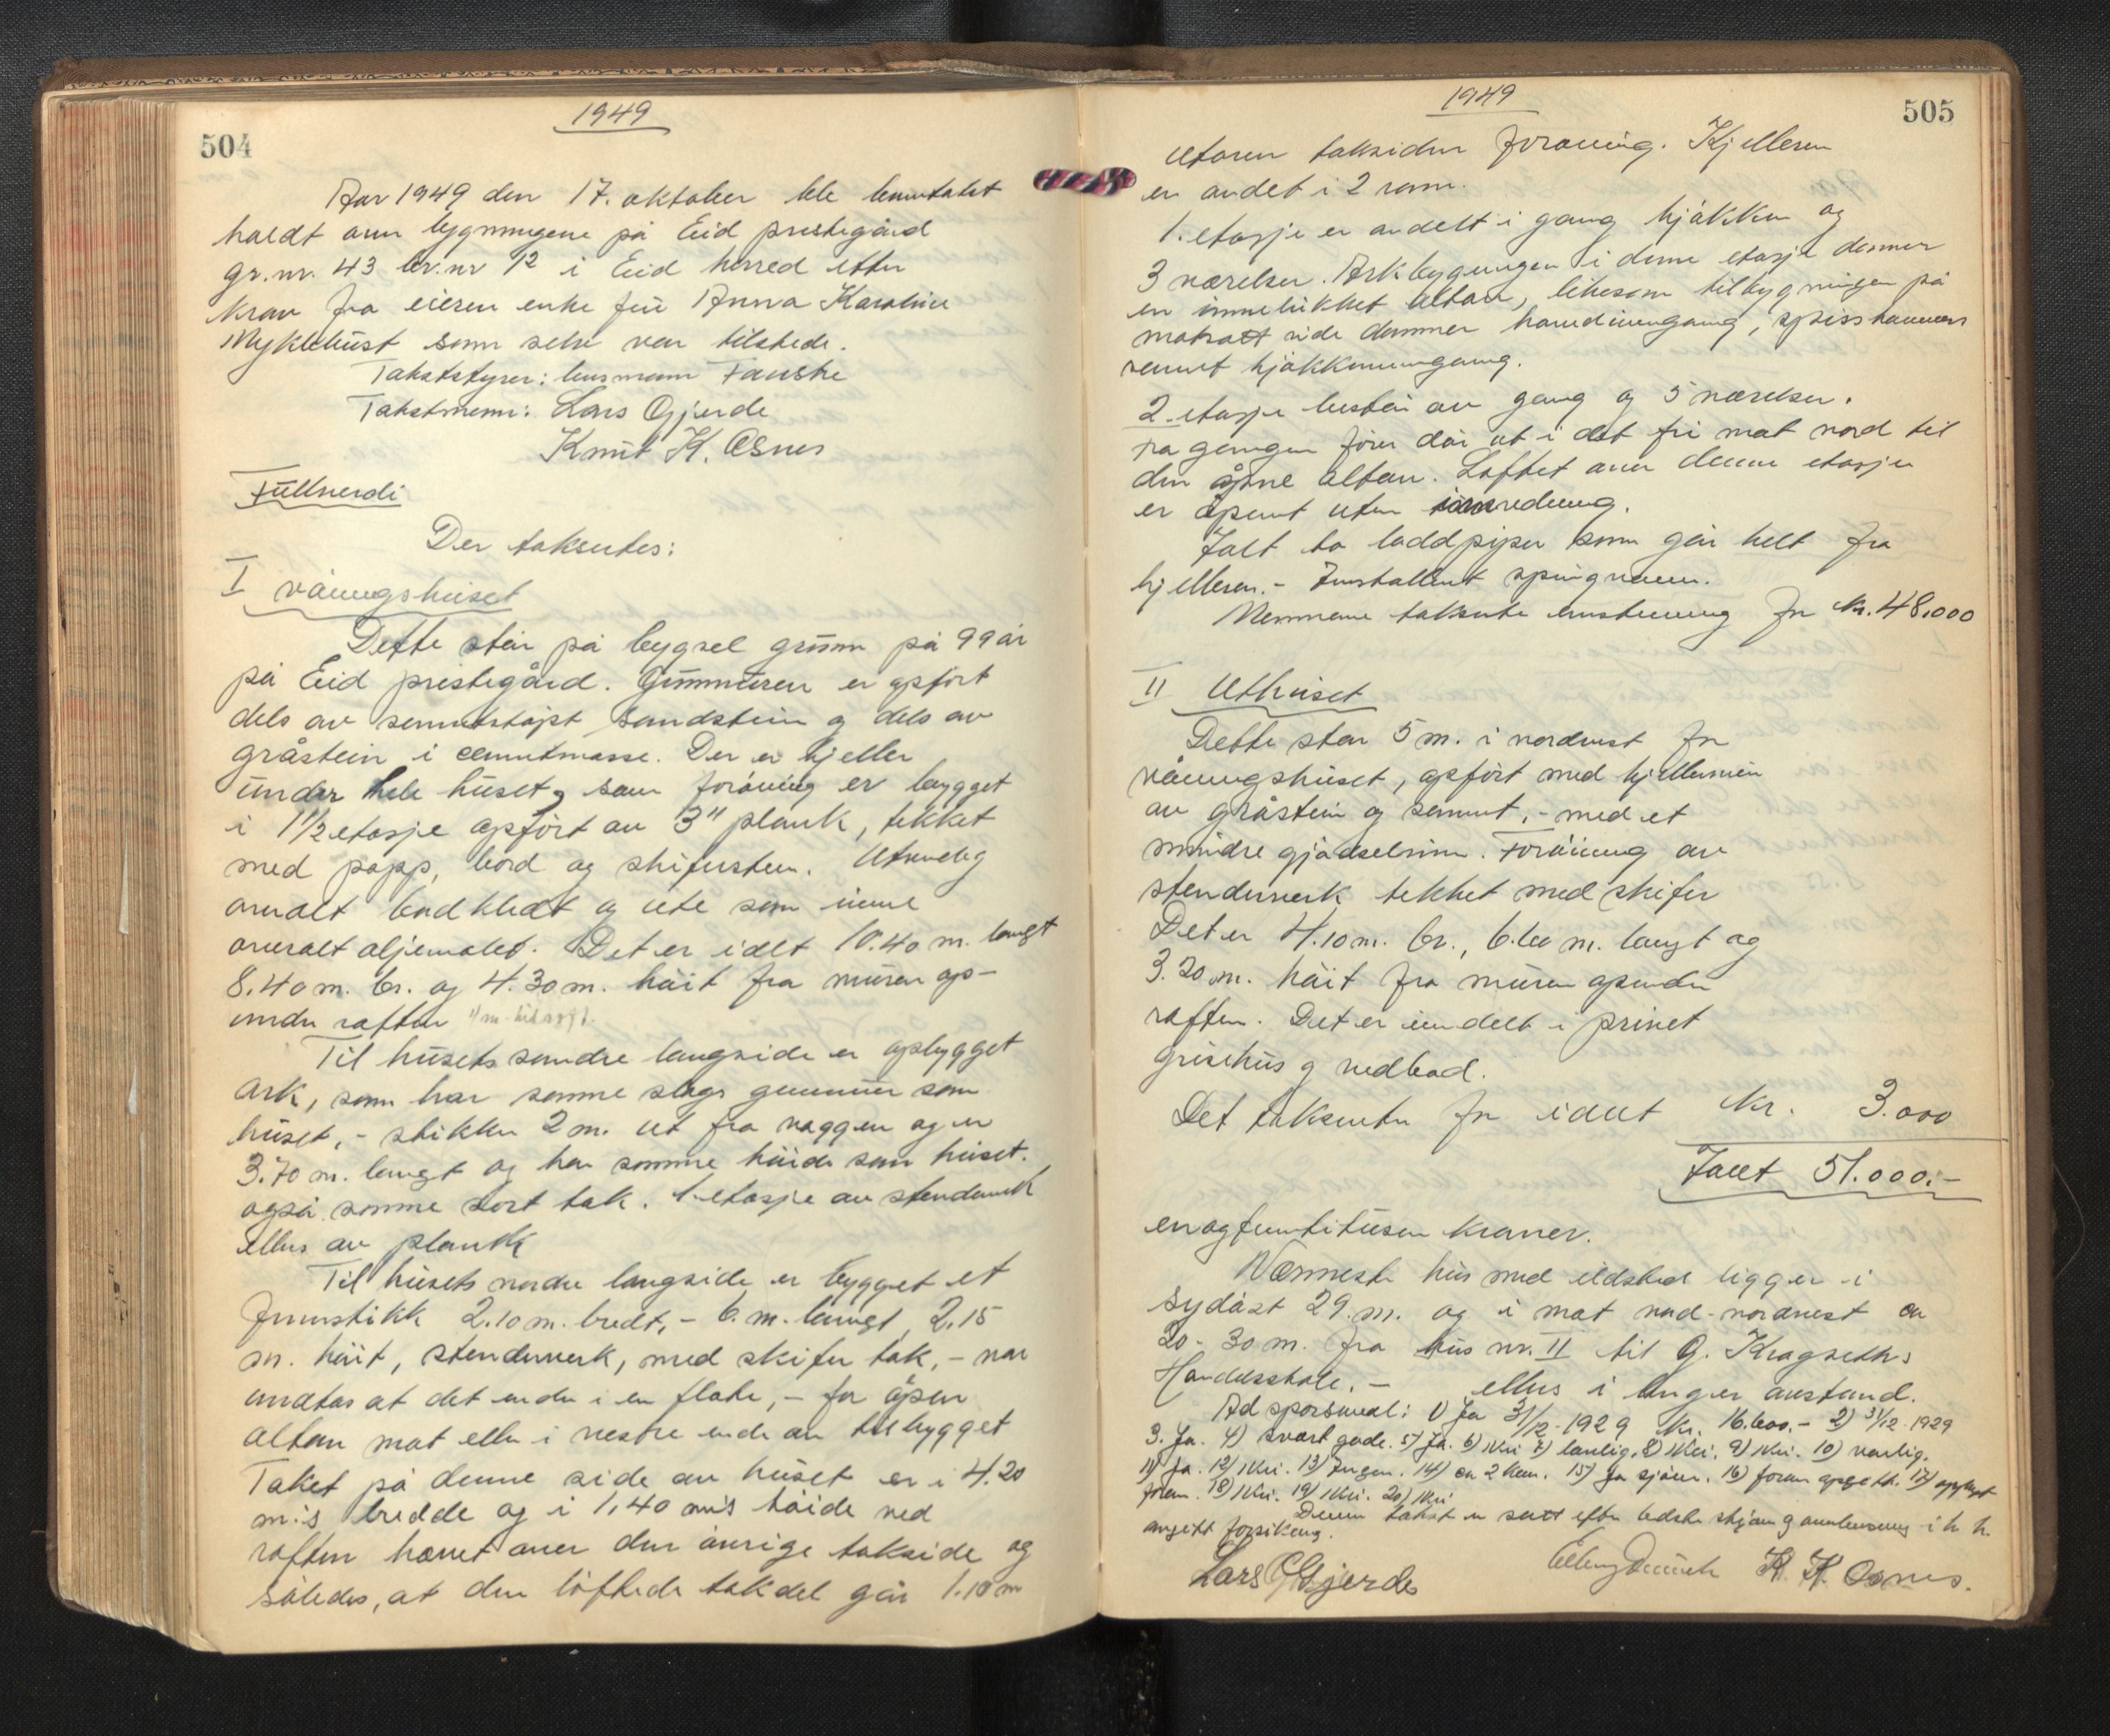 504
1949
Aar 1949 den 17. oktober ble branntakst
holdt over bygningene på Eid prestegård
gr.nr. 43 br.nr 12 i Eid herred etter
krav fra eieren enke fru Anna Karoline
Myklebust som selv var tilstede.
Takststyrer: lensmann Fauske
Takstmenn: Lars Gjerde
Knut K. Osnes
Fullverdi
Der takseres:
I våningshuset
Dette står på bygsel grunn på 99 år
på Eid prestegård. Grunnmuren er opført
dels av sementstøpt sandstein og dels av
gråstein i cementmasse. Der er kjeller
under hele huset, som forøvrig er bygget
i 1 1/2 etasje opført av 3" plank, tekket
med papp, bord og skifersten. Utvendig
overalt bordkledt og ute som inne
overalt oljemalet. Det er idelt 10.40 m. langt
8.40 m. br. og 4.30 m. høit fra muren op-
under raften
Til husets søndre langside er opbygget
ark, som har samme slags grunnmur som
huset, - stikker 2 m. ut fra veggen og er
3.70 m. langt og har samme høide som huset.
også samme sort tak. 1. etasje av stenderverk
ellers av plank
Til husets nordre langside er bygget et
fremstikk 2.10 m. bredt, - 6. m. langt, 2.15
m. høit, stenderverk, med skifer tak, - når
undtas at det ender i en flate, - for åpen
altan mot eller i vestre ende av tilbygget
Taket på denne side av huset er i 4.20
m:s bredde og i 1,40 m's høide ved
raften hevet over den øvrige takside og
således, at den løftede takdel går 1.10 m
1949
505
utover taksiden forøvrig. Kjelleren
er avdelt i 2 rom.
1. etasje er avdelt i gang kjøkken og
3 værelser. Arkbygningen i denne etasje danner
en innelukket altan, likesom tilbygningen på
motsatt side danner hovedinngang, spisskammer
samt kjøkkeninngang.
2. etasje består av gang og 5 værelser.
Fra gangen fører dør ut i det fri mot nord til
den åpne altan. Loftet over denne etasje
er åpent uten innredning.
Ialt to loddpiper som går helt fra
kjelleren. - Installert springvann.
Mennene takserte enstemmig for kr. 48.000
II Uthuset
Dette står 5 m. i nordvest for
våningshuset, opført med kjellermur
av gråstein og sement, - med et
mindre gjødselrum. Forøvrig av
stenderverk tekket med skifer
Det er 4.10 m. br., 6.60 m. langt og
3.20 m. høit fra muren opunder
raften. Det er inndelt i privet
grisehus og vedbod.
Det takseres for idelt kr. 3.000
Ialt 51.000.-
enogfemtitusen kroner.
Nærmeste hus med ildsted ligger i
sydøst 29. m. og i mot nord-nordvest ca
20 - 30 m. fra hus nr. II til G. Kragseths
Handelsskole. - ellers i lenger avstand.
Ad spørsmål: 1) Ja 31/12-1929 kr. 16.600.- 2) 31/12-1929
3. Ja. 4) svært gode. 5) Ja. 6) Nei 7) lovlig. 8) Nei. 9) Nei. 10) vanlig.
11) Ja. 12) Nei. 13) Ingen. 14) ca 2 km. 15) Ja sjøen. 16) foran opgitt. 17)
18) Nei. 19) Nei. 20) Nei
Denne takst er satt efter bedste skjøn og
Lars G Gjerde
K. K. Osnes.